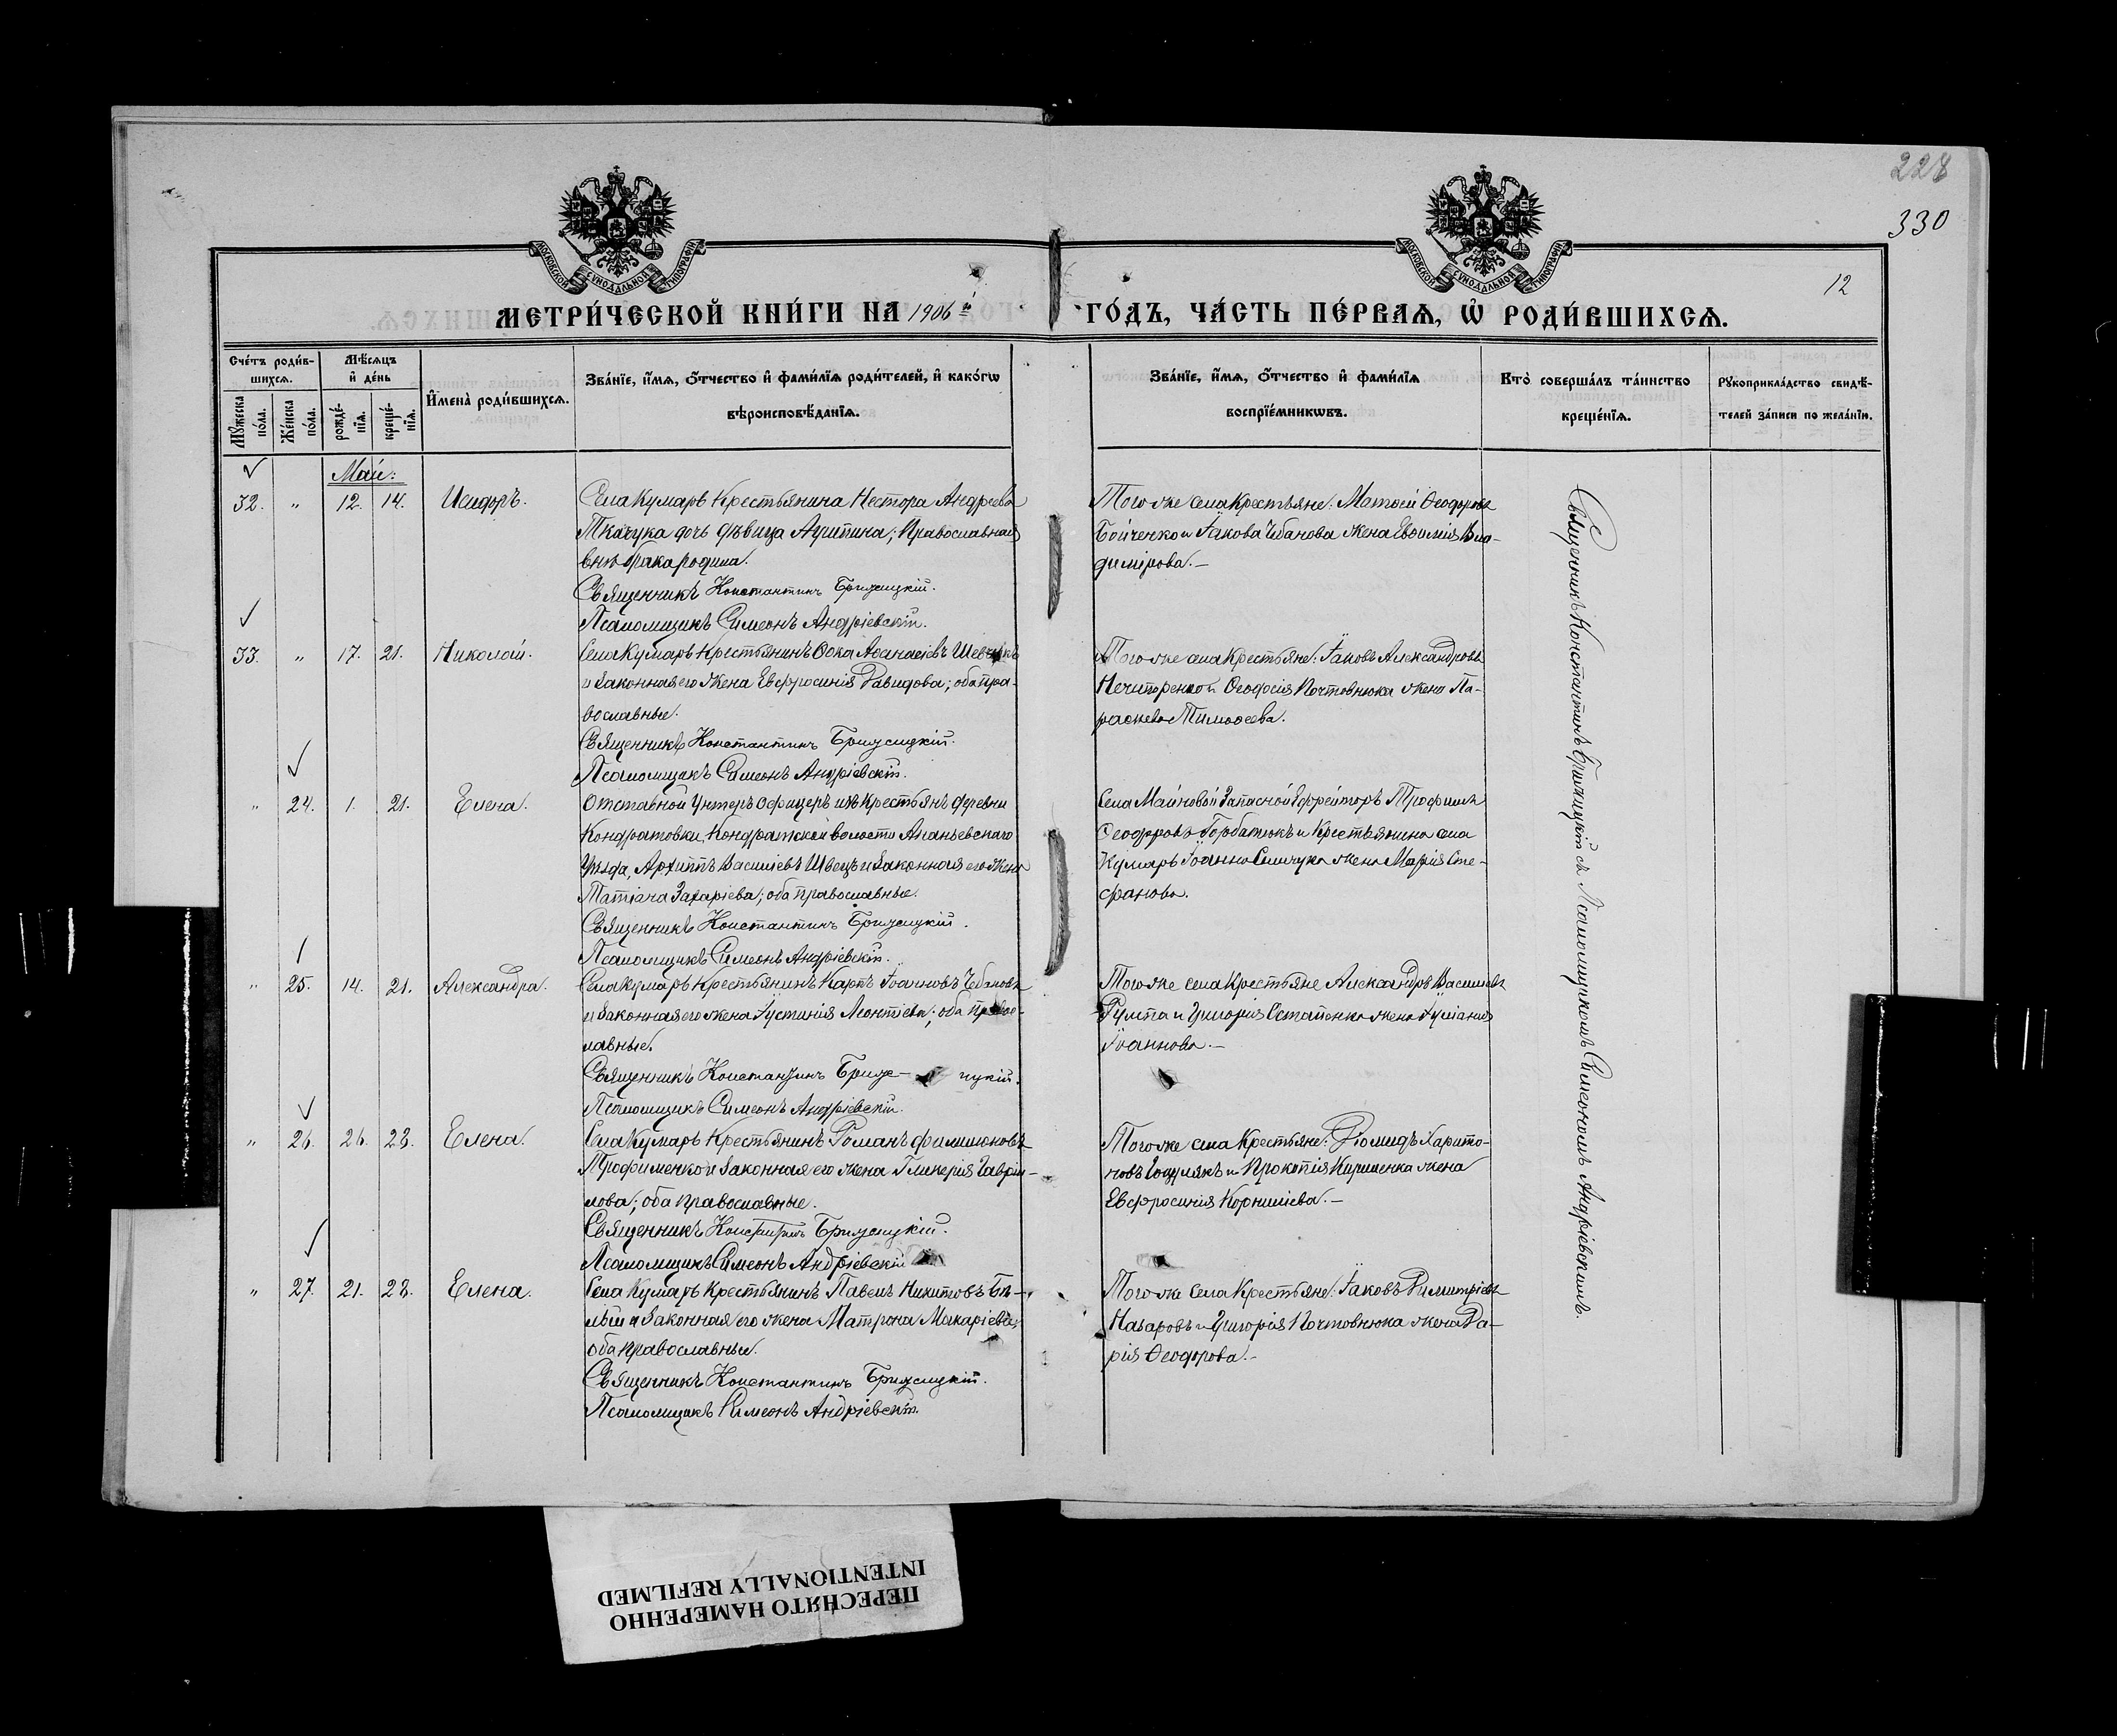 228
330
12
МОСКОВСКОЙ СУНОДАЛЬНОЙ ТИПОГРАФІИ
МОСКОВСКОЙ СУНОДАЛЬНОЙ ТИПОГРАФІИ
МЕТРИ́ЧЕСКОЙ КНИ́ГИ НА 1906й ГО́ДЪ, ЧА́СТЬ ПЕ́РВАѦ, Ѡ҆ РОДИ́ВШИХСѦ.
Сче́тъ роди́в-
шихсѧ.
Мѣ́сѧцъ
и҆ де́нь
Мꙋ́жеска по́ла.
Же́нска по́ла.
рожде́-
нїѧ.
креще́-
нїѧ.
И҆мена̀ роди́вшихсѧ.
Зва́нїе, и҆́мѧ, о҆́тчество и҆ фами́лїѧ роди́телей, и҆ како́гѡ
вѣроисповѣ́данїѧ.
Зва́нїе, и҆́мѧ, о҆́тчество и҆ фами́лїѧ
воспрїе́мникѡвъ.
Кто̀ соверша́лъ та́инство
креще́нїѧ.
Рꙋкоприкла́дство свидѣ́-
телей за́писи по жела́нїю.
Май:
32. " 12. 14. Исидоръ.
Села Кумаръ Крестьянина Нестора Андреева
Ткачука дочь дѣвица Агрипина; Православная
внѣ брака родила.
Священникъ Константинъ
Псаломщикъ Симеонъ Андріевскій.
Того же села Крестьяне: Матѳей Ѳеодоровъ
Бойченко и Іакова Чебанова жена Евѳимія Вла-
димірова.—
33. " 17. 21. Николай.
Села Кумаръ Крестьянинъ Ѳока Аѳанасіевъ
и Законная его жена Евфросинія Давидова; оба пра-
вославные.
Священникъ Константинъ
Псаломщикъ Симеонъ Андріевскій.
Того же села Крестьяне: Іаковъ Александровъ
Нечипоренко и Ѳеодосія Почтовнюка жена Па-
раскева Тимоѳеева.
" 24. 1. 21. Елена.
Отставной Унтеръ Офицеръ изъ Крестьянъ деревни
Кондратовки, Кондратской волости Ананьевскаго
Уѣзда, Архиппъ Василіевъ Швецъ и Законная его жена
Татіана Захаріева; оба православные.
Священникъ Константинъ
Псаломщикъ Симеонъ Андріевскій.
Села Майновой Запасной Ефрейторъ Трофимъ
Ѳеодоровъ Горбатюкъ и Крестьянина села
Кумаръ Іоанна жена Марія Сте-
фанова.
" 25. 14. 21. Александра.
Села Кумаръ Крестьянинъ Карпъ Іоанновъ Чебановъ
и Законная его жена Іустинія Леонтіева; оба правос-
лавные.
Священникъ Константинъ
Псаломщикъ Симеонъ Андріевскій.
Того же села Крестьяне Александръ Василіевъ
и Григорія Остапенка жена Іуліанія
Іоаннова.—
" 26. 26. 28. Елена.
Села Кумаръ Крестьянинъ Романъ Филимоновъ
Трофименко и Законная его жена Гликерія Гаврі-
лова; оба православные.
Священникъ
Псаломщикъ Симеонъ Андріевскій
Того же села Крестьяне: Діомидъ Харито-
новъ и Прокопія Кириленка жена
Евфросинія Корниліева.—
" 27. 21. 28. Елена.
Села Кумаръ Крестьянинъ Павелъ Никитовъ Бѣ-
лый и Законная его жена Матрона Макаріева;
оба православные.
Священникъ Константинъ
Псаломщикъ Симеонъ Андріевскій.
Того же села Крестьяне: Іаковъ Димитріевъ
Назаровъ и Григорія Почтовнюка жена Да-
рія Ѳеодорова.—
Священникъ Константинъ съ Псаломщикомъ Симеономъ Андріевскимъ.
ПЕРЕСНЯТО НАМЕРЕННО
INTENTIONALLY REFILMED